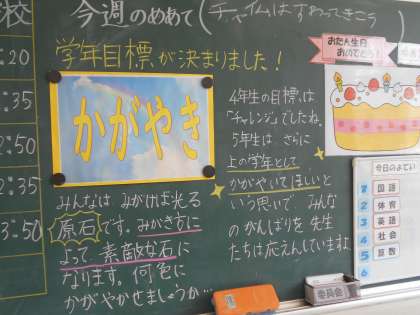 校
今週のめあて(チャイムはすわってきこう
学年目標が決まりました!
:20
2:35
2:35
3:50
かがやき
みんなは みがけば光る
原石です。みがき方に
よって、素敵な石に
なります。何色に
かがやかせましょうか…
4年生の目標は
「チャレンジ」でしたね。
5年生は さらに
上の学年として
かがやいてほしいと
いう思いで、みんな
のがんばりを 先生
たちは応えんしていますよ
おたん生日
おめでとう!
今日のよてい
1 国語
2 体育
3 英語
4 社会
5 算数
6
委員会